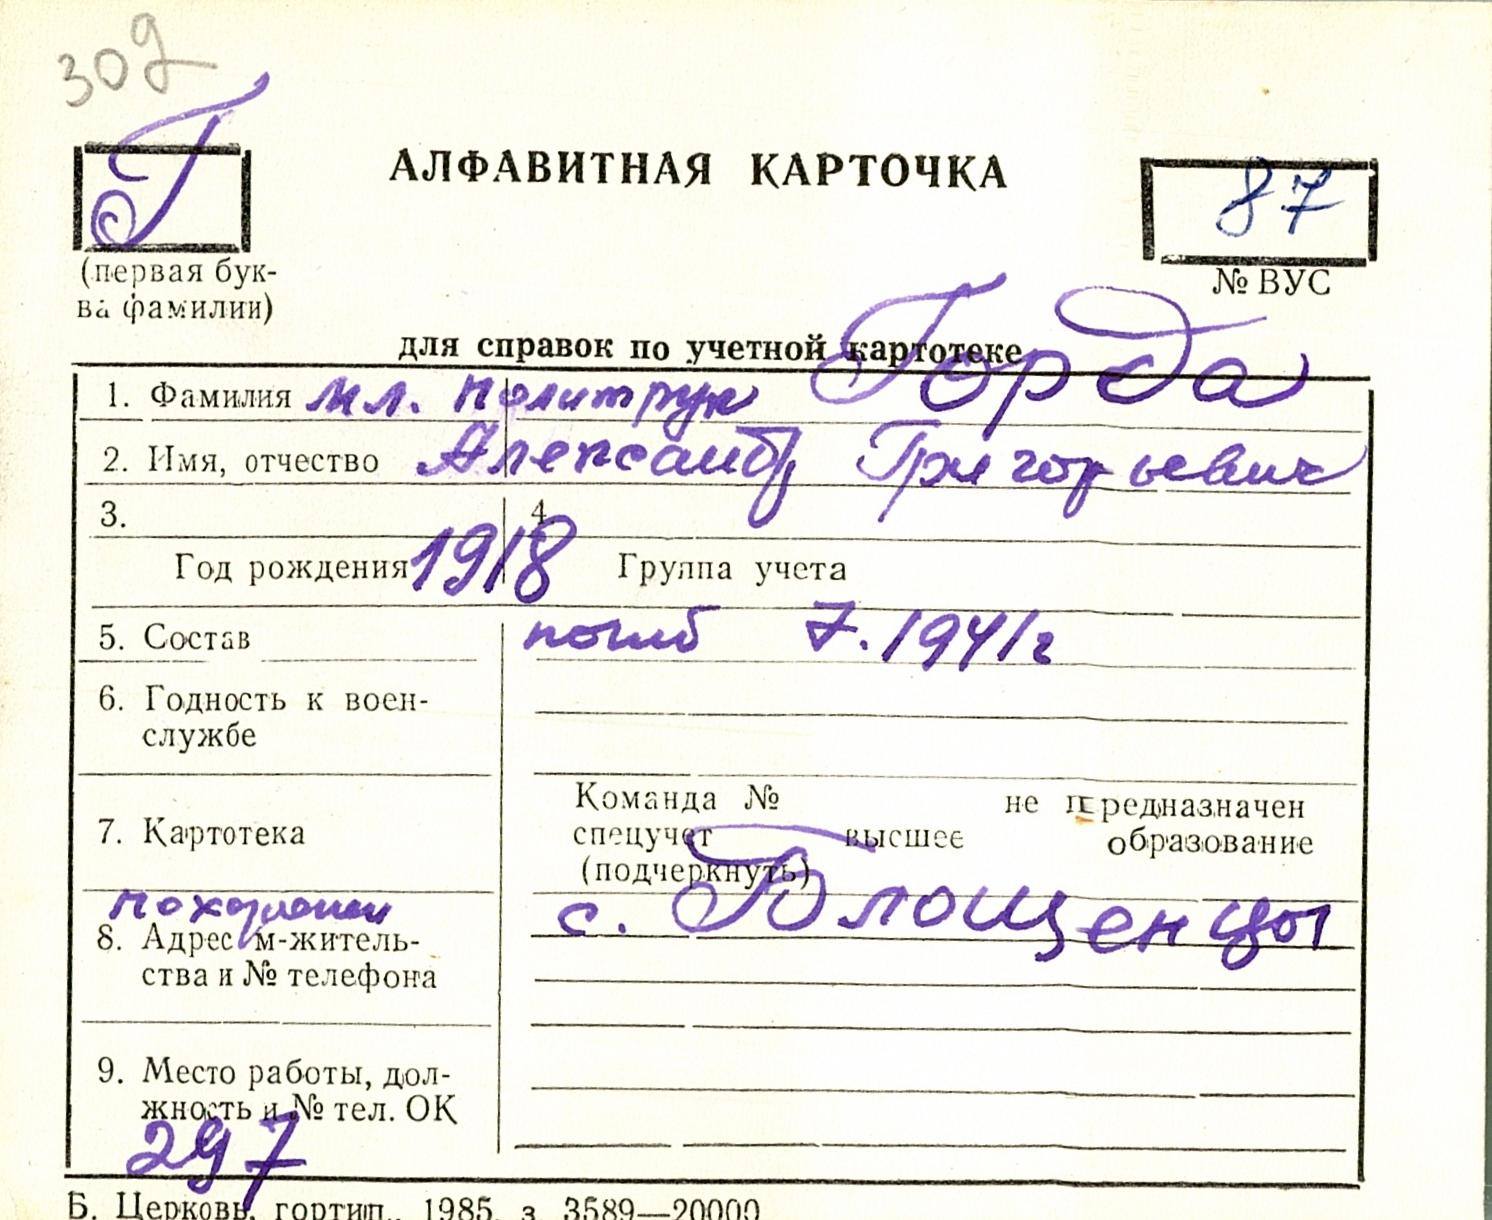 309
Г
АЛФАВИТНАЯ КАРТОЧКА
87
(первая бук-
ва фамилии)
№ ВУС
для справок по учетной картотеке
1. Фамилия мл. политрук Горда
2. Имя, отчество Александр Григорьевич
3. 4.
Год рождения 1918 Группа учета
5. Состав погиб 7.1941г
6. Годность к воен-
службе
Команда № не предназначен
7. Картотека спецучет высшее образование
(подчеркнуть)
похоронен
8. Адрес м-житель- с. Блощенцы
ства и № телефона
9. Место работы, дол-
жность и № тел. ОК
297
Б. Церковь, гортип., 1985, з. 3589—20000